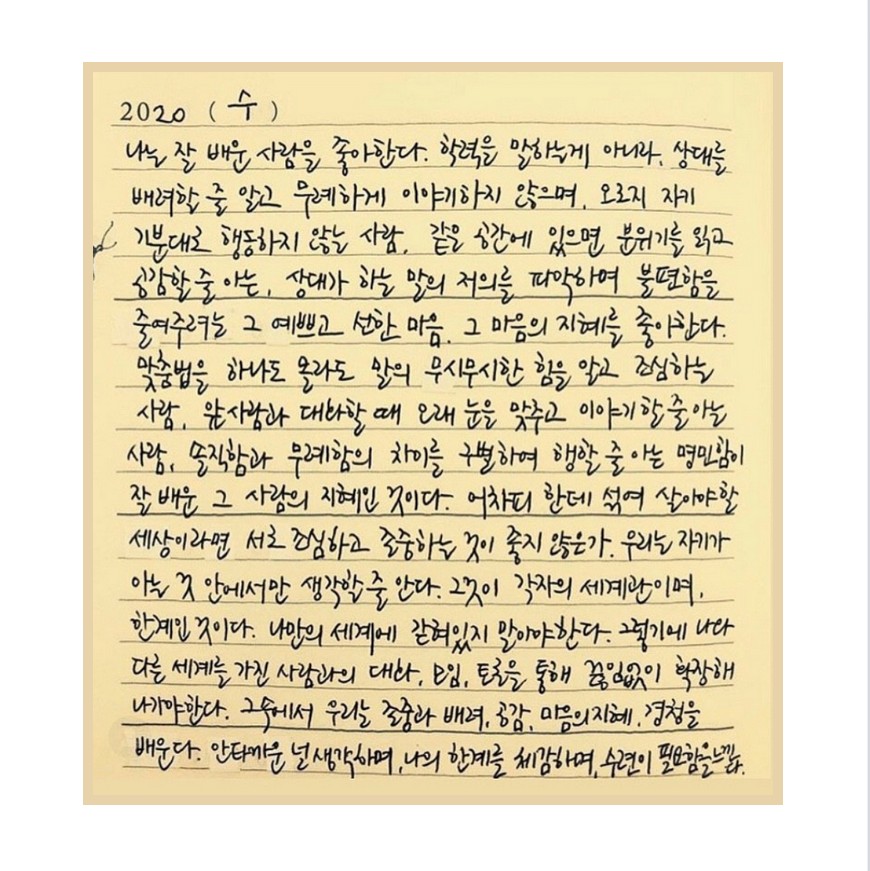 2020 ( 수 )
나는 잘 배운 사람을 좋아한다. 학력을 말하는게 아니라, 상대를
배려할 줄 알고 무례하게 이야기하지 않으며, 오로지 자기
기분대로 행동하지 않는 사람, 같은 공간에 있으면 분위기를 읽고
공감할 줄 아는, 상대가 하는 말의 저의를 파악하여 불편함을
줄여주려는 그 예쁘고 선한 마음, 그 마음의 지혜를 좋아한다.
맞춤법을 하나도 몰라도 말의 무시무시한 힘을 알고 조심하는
사람, 앞사람과 대화할 때 오래 눈을 맞추고 이야기 할 줄 아는
사람, 솔직함과 무례함의 차이를 구별하여 행할 줄 아는 명민함이
잘 배운 그 사람의 지혜인 것이다. 어차피 한데 섞여 살아야할
세상이라면 서로 조심하고 존중하는 것이 좋지 않은가. 우리는 자기가
아는 것 안에서만 생각할 줄 안다. 그것이 각자의 세계관이며,
한계인 것이다. 나만의 세계에 갇혀있지 말아야한다. 그렇기에 나와
다른 세계를 가진 사람과의 대화, 모임, 토론을 통해 끊임없이 확장해
나가야한다. 그속에서 우리는 존중과 배려, 공감, 마음의지혜, 경청을
배운다. 안타까운 널 생각하며, 나의 한계를 체감하며, 수련이 필요함을느낀다.